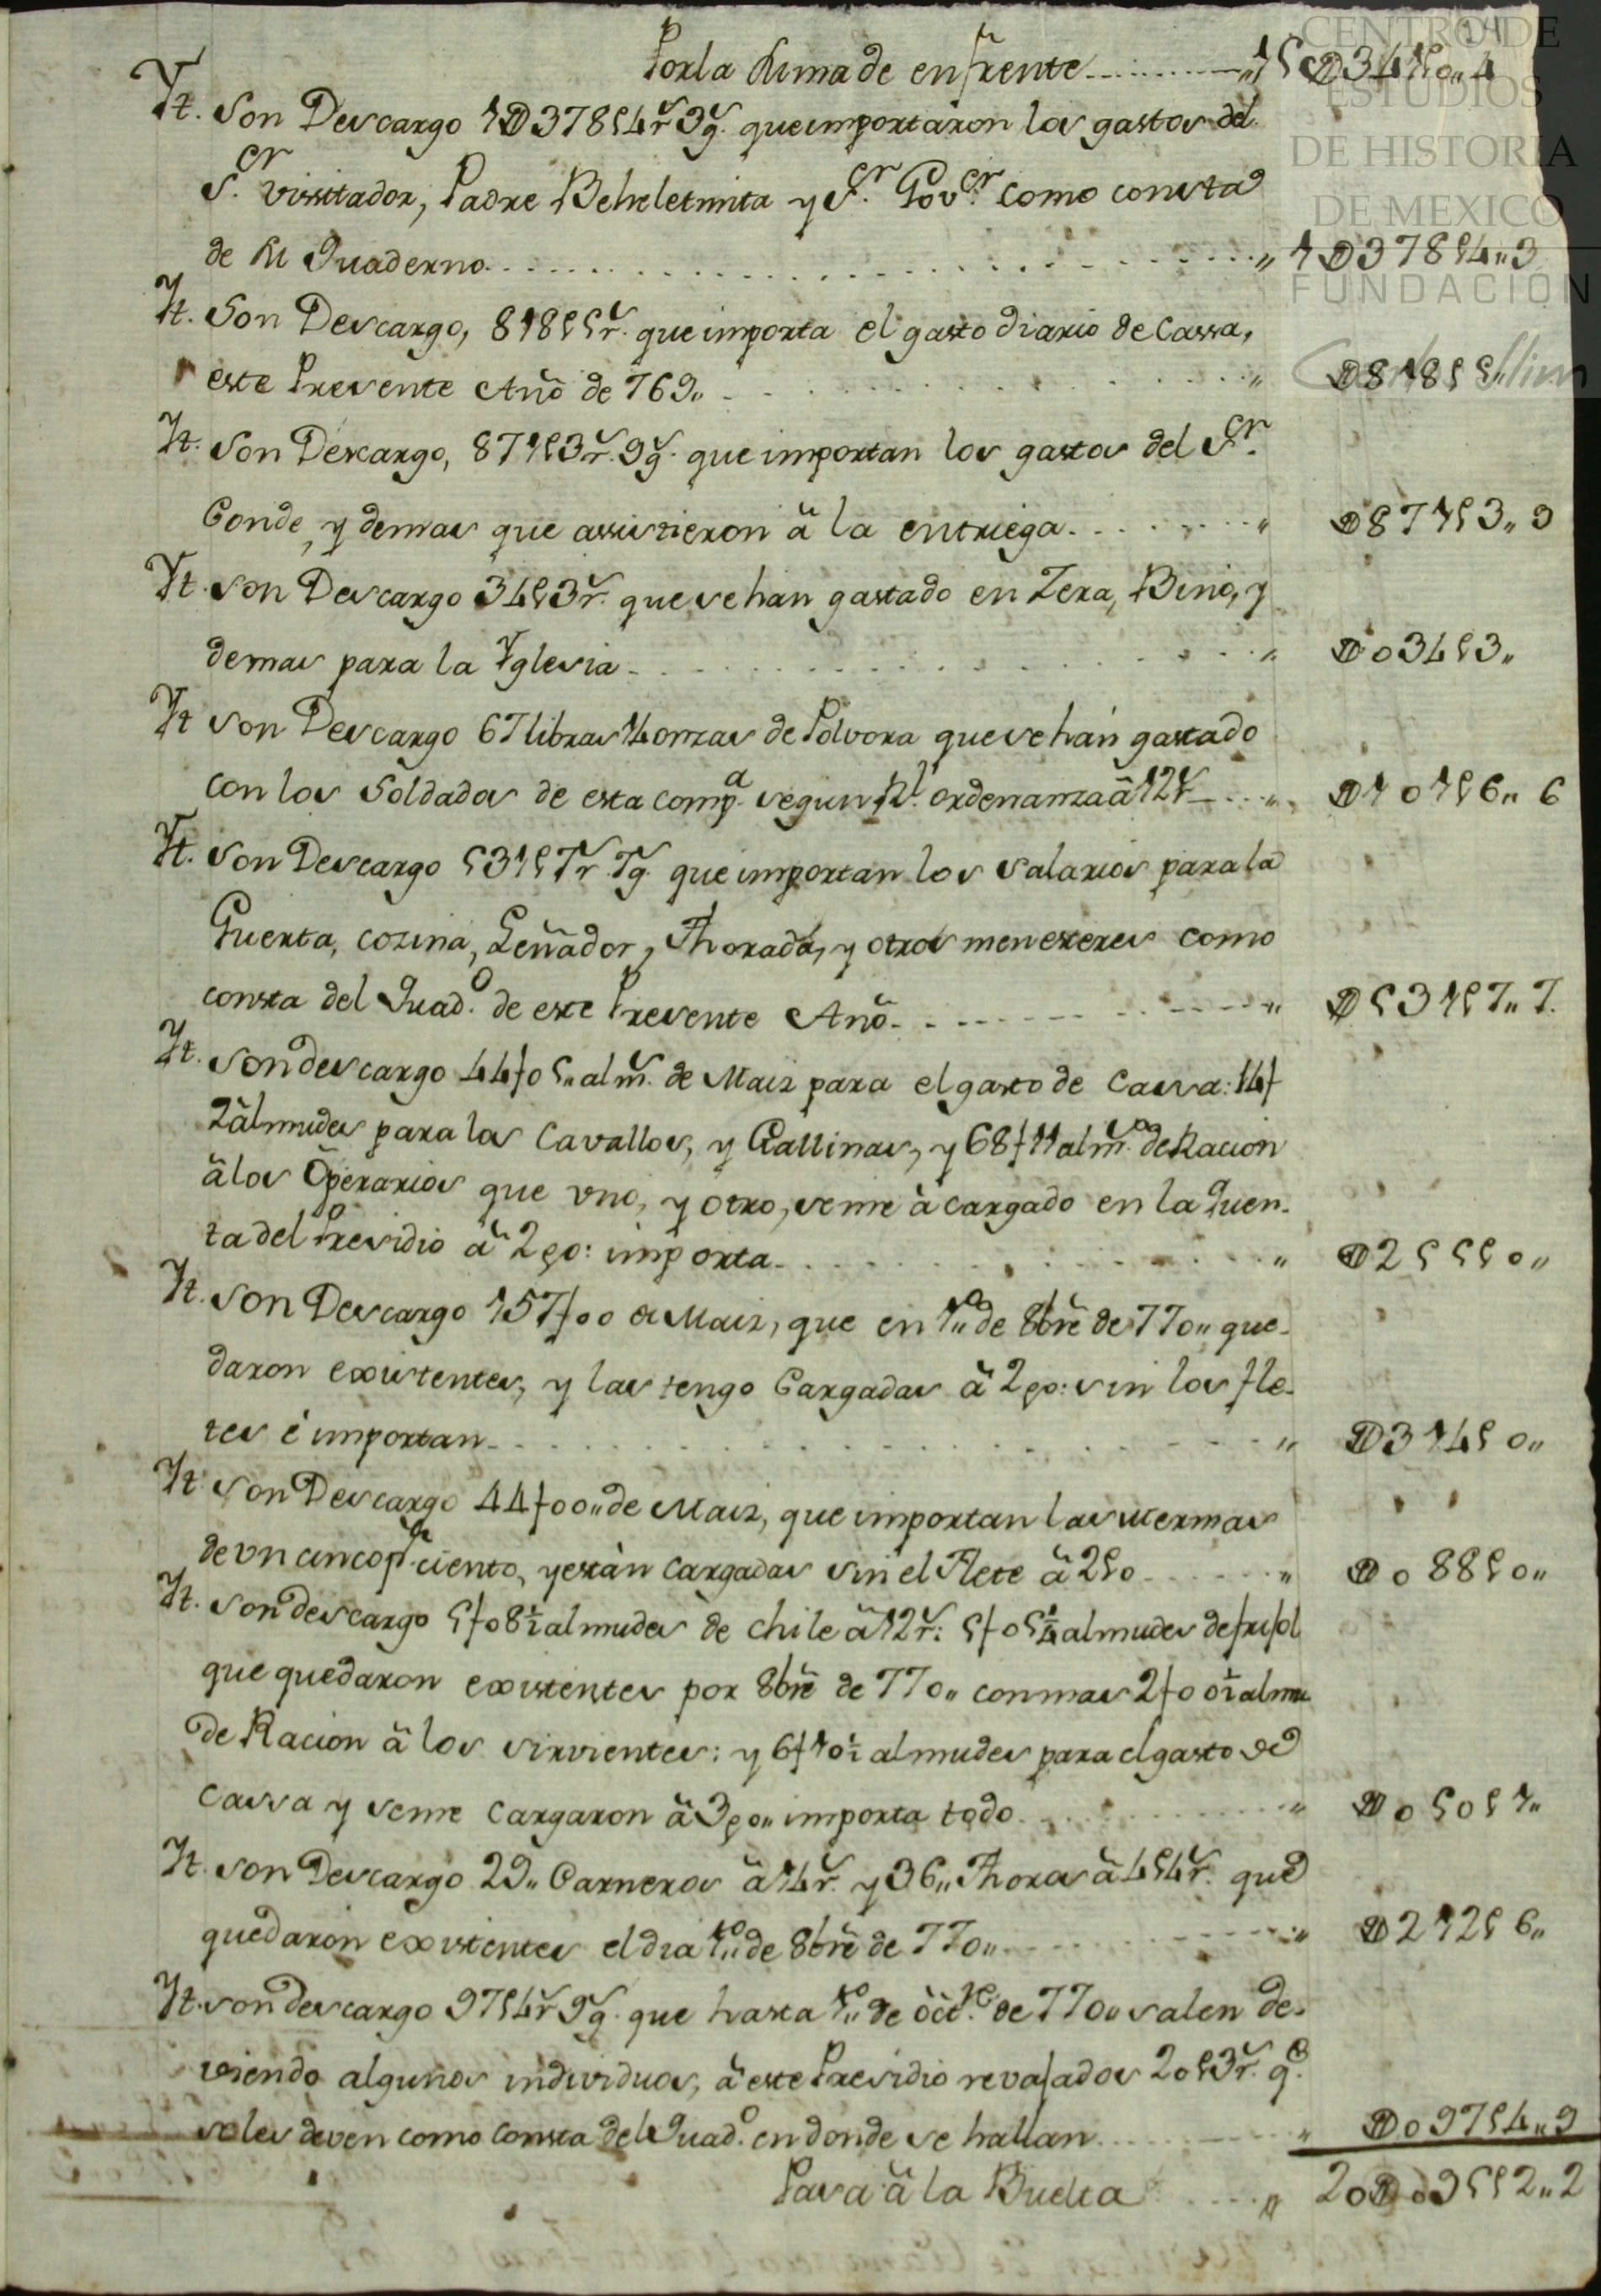 CENTRO DE
ESTUDIOS
DE HISTORIA
DE MEXICO
FUNDACIÓN
Por la suma de enfrente ........ „ 15D34150„4
Yt. Son Descargo 1D378$4rs 3gs. que importaron los gastos del
Sor. Vissitador, Padre Beheletmita y Sor. Govor. como consta
de su Quaderno ........ „ 1D378$4„3
Yt. Son Descargo, 818$5rs. que importa el gasto diario de Cassa,
este Presente Año de 769„ ........ „ D818$5„
Yt. Son Descargo, 871$3rs. 9gs. que importan los gastos del Sor.
Conde, y demas que assistieron â la entriega ........ „ D871$3„9
Yt. Son Descargo 34$3rs. que se han gastado en Zera, Bino, y
demas para la Yglesia ........ „ D034$3„
Yt Son Descargo 67 libras 14 onzas de Polvora que se hán gastado
con los Soldados de esta compa. segun Rl. ordenanza â 12rs ........ „ D101$6„6
Yt. Son Descargo 531$7rs 7gs. que importan los salarios para la
Guerta, cozina, Leñador, Thorada, y otros menesteres como
consta del Quado. de este Presente Año ........ „ D531$7„7.
Yt. Son descargo 44f05„ alms. de Maiz para el gasto de Cassa: 14f
2 almudes para los Cavallos, y Gallinas, y 68f11 alms. de Racion
â los Operarios que uno, y otro, se me â cargado en la Quen-
ta del Presidio â 2po: importa ........ „ D255$0„
Yt. Son Descargo 157f00 de Maiz, que en 1o„ de 8bre de 770„ que-
daron existentes, y las tengo Cargadas â 2po: sin los fle-
tes é importan ........ „ D314$0„
Yt Son Descargo 44f00„ de Maiz, que importan las mermas
de un cinco pr. ciento, y están cargadas sin el Flete â 2$0 ........ „ D088$0„
Yt. Son descargo 5f08½ almudes de chile â 12rs: 5f05¼ almudes de frisol
que quedaron existentes por 8bre de 770„ con mas 2f00½ almu
de Racion â los sirvientes: y 6f10½ almudes para el gasto de
Cassa y se me Cargaron â 3po„ importa todo ........ „ D050$1„
Yt. Son Descargo 29„ Carneros â 14rs. y 36„ Thoros â 4$4rs. que
quedaron existentes el dia 1o„ de 8bre de 770„ ........ „ D212$6„
Yt. Son descargo 97$4rs 9gs. que hasta 1o„ de octre. de 770„ salen de-
viendo algunos individuos, â este Presidio revajados 20$3rs. qe.
se les deven como consta del Quado. en donde se hallan ........ „ D097$4„9
Pasa â la Buelta ........ „ 20D095$2„2